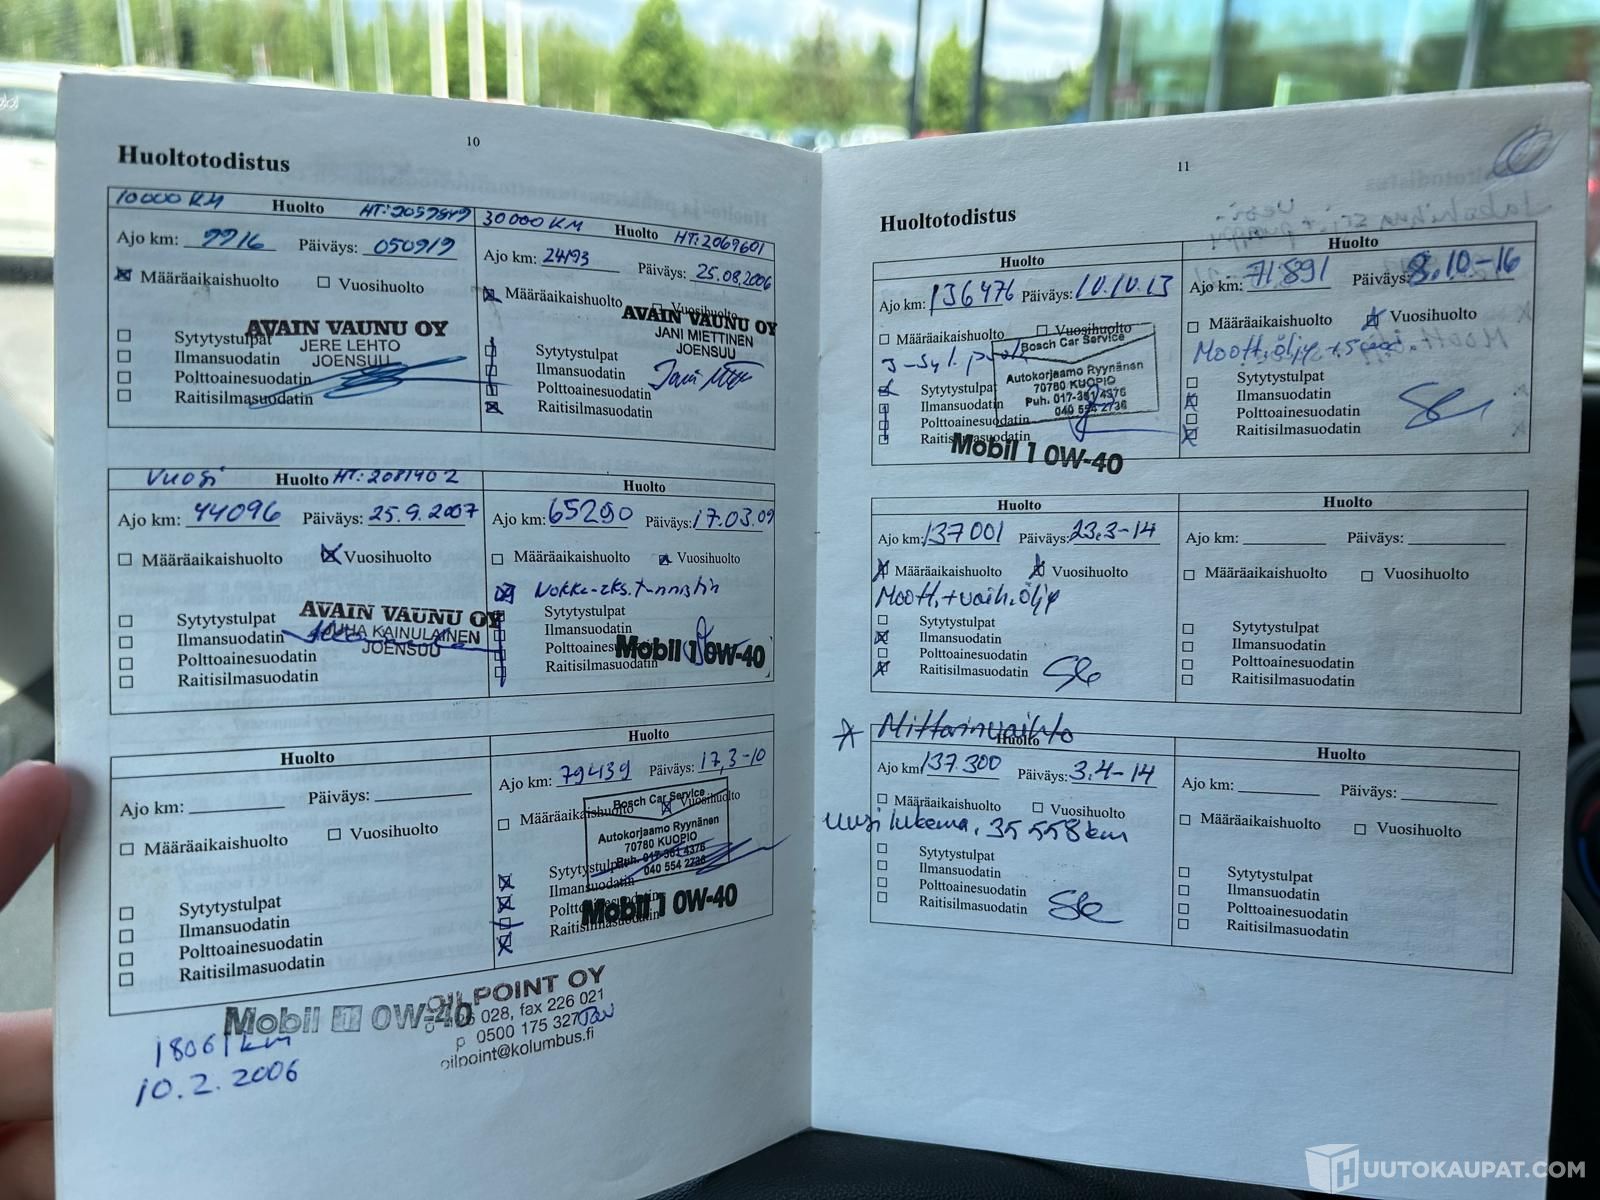 10
Huoltotodistus
10000 KM Huolto HT:2057849
Ajo km: 9916 Päiväys: 050919
Määräaikaishuolto Vuosihuolto
AVAIN VAUNU OY
JERE LEHTO
JOENSUU
Sytytystulpat
Ilmansuodatin
Polttoainesuodatin
Raitisilmasuodatin
30000 KM Huolto HT:2069601
Ajo km: 24193 Päiväys: 25.08.2006
Määräaikaishuolto Vuosihuolto
AVAIN VAUNU OY
JANI MIETTINEN
JOENSUU
Sytytystulpat
Ilmansuodatin
Polttoainesuodatin
Raitisilmasuodatin
Vuosi Huolto HT:2081402
Ajo km: 44096 Päiväys: 25.9.2007
Määräaikaishuolto Vuosihuolto
AVAIN VAUNU OY
JUHA KAINULAINEN
JOENSUU
Sytytystulpat
Ilmansuodatin
Polttoainesuodatin
Raitisilmasuodatin
Huolto
Ajo km: 65290 Päiväys: 17.03.09
Määräaikaishuolto Vuosihuolto
Nokka-aks.tunnistin
Sytytystulpat
Ilmansuodatin
Polttoainesuodatin
Raitisilmasuodatin
Mobil 1 0W-40
Huolto
Ajo km: Päiväys:
Määräaikaishuolto Vuosihuolto
Sytytystulpat
Ilmansuodatin
Polttoainesuodatin
Raitisilmasuodatin
Huolto
Ajo km: 79439 Päiväys: 17,3-10
Määräaikaishuolto Vuosihuolto
Bosch Car Service
Autokorjaamo Ryynänen
70780 KUOPIO
Puh. 017-361 4376
040 554 2736
Sytytystulpat
Ilmansuodatin
Polttoainesuodatin
Raitisilmasuodatin
Mobil 1 0W-40
Mobil 1 0W-40
OILPOINT OY
028, fax 226 021
p 0500 175 327
oilpoint@kolumbus.fi
18061 km
10.2.2006
11
Huoltotodistus
Huolto
Ajo km: 136476 Päiväys: 10.10.13
Määräaikaishuolto Vuosihuolto
Bosch Car Service
Autokorjaamo Ryynänen
70780 KUOPIO
Puh. 017-361 4376
040 554 2736
Sytytystulpat
Ilmansuodatin
Polttoainesuodatin
Raitisilmasuodatin
Mobil 1 0W-40
Huolto
Ajo km: 71.891 Päiväys: 8.10-16
Määräaikaishuolto Vuosihuolto
Sytytystulpat
Ilmansuodatin
Polttoainesuodatin
Raitisilmasuodatin
Huolto
Ajo km: 137001 Päiväys: 23.3-14
Määräaikaishuolto Vuosihuolto
Moott.+vaih.öljy
Sytytystulpat
Ilmansuodatin
Polttoainesuodatin
Raitisilmasuodatin
Huolto
Ajo km: Päiväys:
Määräaikaishuolto Vuosihuolto
Sytytystulpat
Ilmansuodatin
Polttoainesuodatin
Raitisilmasuodatin
Mittarinvaihto
Huolto
Ajo km 137.300 Päiväys: 3.4-14
Määräaikaishuolto Vuosihuolto
uusi lukema, 35 558 km
Sytytystulpat
Ilmansuodatin
Polttoainesuodatin
Raitisilmasuodatin
Huolto
Ajo km: Päiväys:
Määräaikaishuolto Vuosihuolto
Sytytystulpat
Ilmansuodatin
Polttoainesuodatin
Raitisilmasuodatin
HUUTOKAUPAT.COM